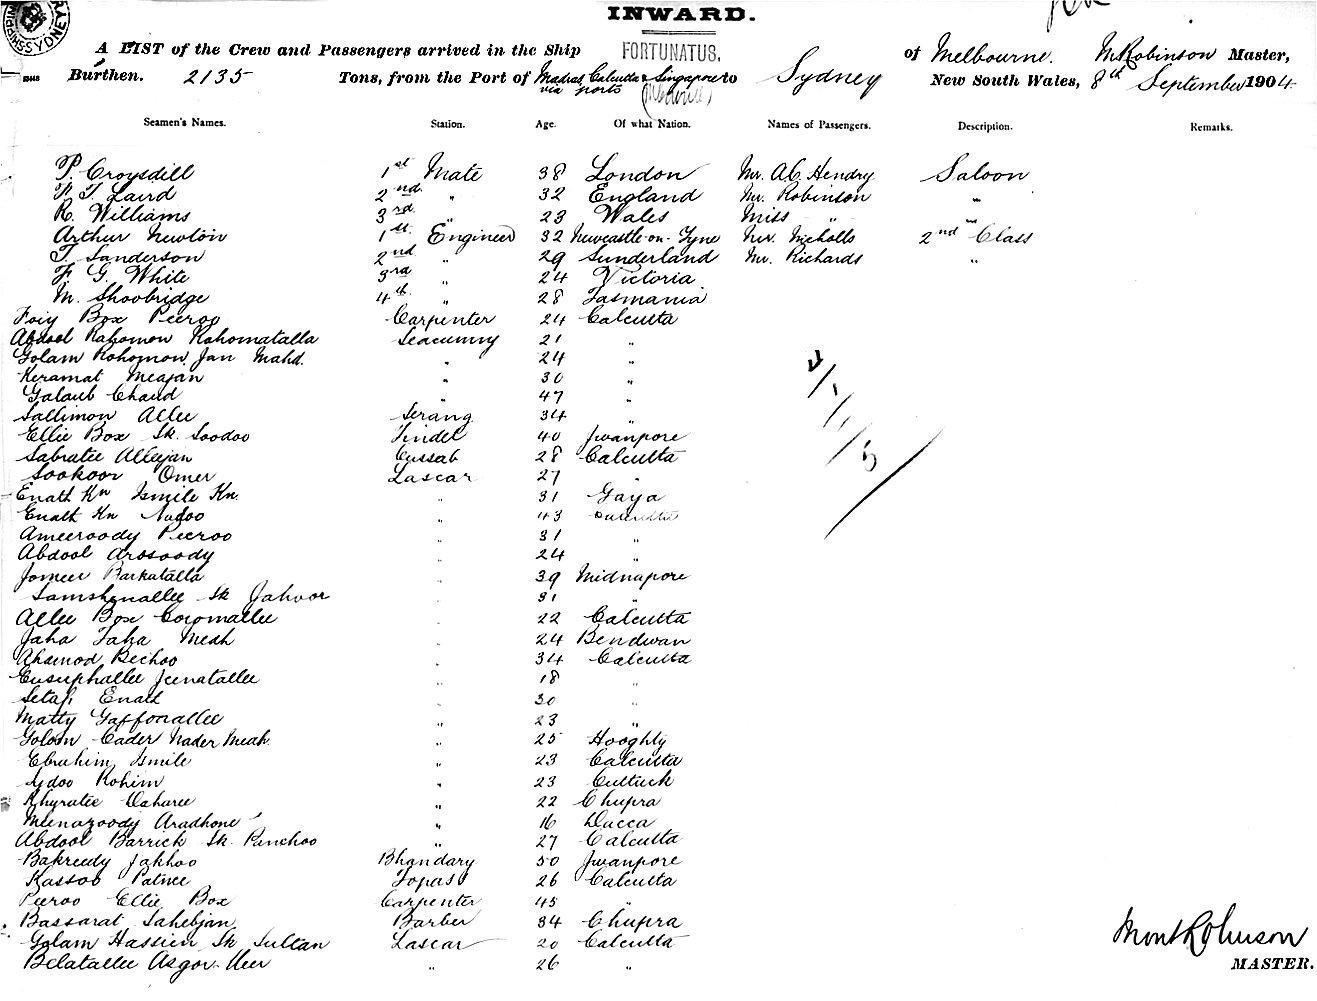 INWARD.
A LIST of the Crew and Passengers arrived in the Ship FORTUNATUS, of Melbourne. M. Robinson Master,
Burthen. 2135 Tons, from the Port of Madras Calcutta & Singapore via ports to Sydney New South Wales, 8th September 1904
Seamen's Names. Station. Age. Of what Nation. Names of Passengers. Description. Remarks.
P. Croysdill 1st Mate 38 London Mr. A.C. Hendry Saloon
F. T. Laird 2nd. " 32 England Mr. Robinson "
R. Williams 3rd. " 23 Wales Miss " "
Arthur Newton 1st. Engineer 32 Newcastle-on-Tyne Mr. Nicholls 2nd Class
T. Sanderson 2nd " 29 Sunderland Mr. Richards "
F. G. White 3rd " 24 Victoria
M. Shoobridge 4th. " 28 Tasmania
Foiy Box Peeroo Carpenter 24 Calcutta
Abdool Rahomon Rohomatalla Seacunny 21 "
Golam Rohomon Jan Mahd. " 24 "
Keramat Meajan " 30 "
Golaub Chand " 47 "
Sallimon Allee Serang 34 "
Ellie Box Sk. Soodoo Tindel 40 Jwanpore
Sabratee Alleejan Cussab 28 Calcutta
Sookoor Omer Lascar 27 "
Enath Kn Ismile Kn. " 31 Gaya
Enath Kn Nadoo " 43 Calcutta
Ameeroody Peeroo " 31 "
Abdool Arosoody " 24 "
Jomeer Barkatalla " 39 Midnapore
Samshenallee Sk Jahoor " 31 "
Allee Box Coromallee " 22 Calcutta
Jaha Taha Meah " 24 Bendwan
Ahamod Bechoo " 34 Calcutta
Eusuphallee Jeenatallee " 18 "
Setab Enath " 30 "
Matty Gaffonallee " 23 "
Golom Cader Nader Meah. " 25 Hooghly
Ebrahim Ismile " 23 Calcutta
Rohim " 23 Cuttuck
Khyratee " 22 Chupra
Meenazoody Aradhone " 16 Dacca
Abdool Barrick Sk. Panchoo " 27 Calcutta
Bakreedy Jakhoo Bhandary 50 Jwanpore
Kassob Patnee Topass 26 Calcutta
Peeroo Ellie Box Carpenter 45 "
Bassarat Sahebjan Barber 34 Chupra
Golam Hassien Sk Sultan Lascar 20 Calcutta
Belatallee Asgor Meer " 26 "
Mont Robinson
MASTER.